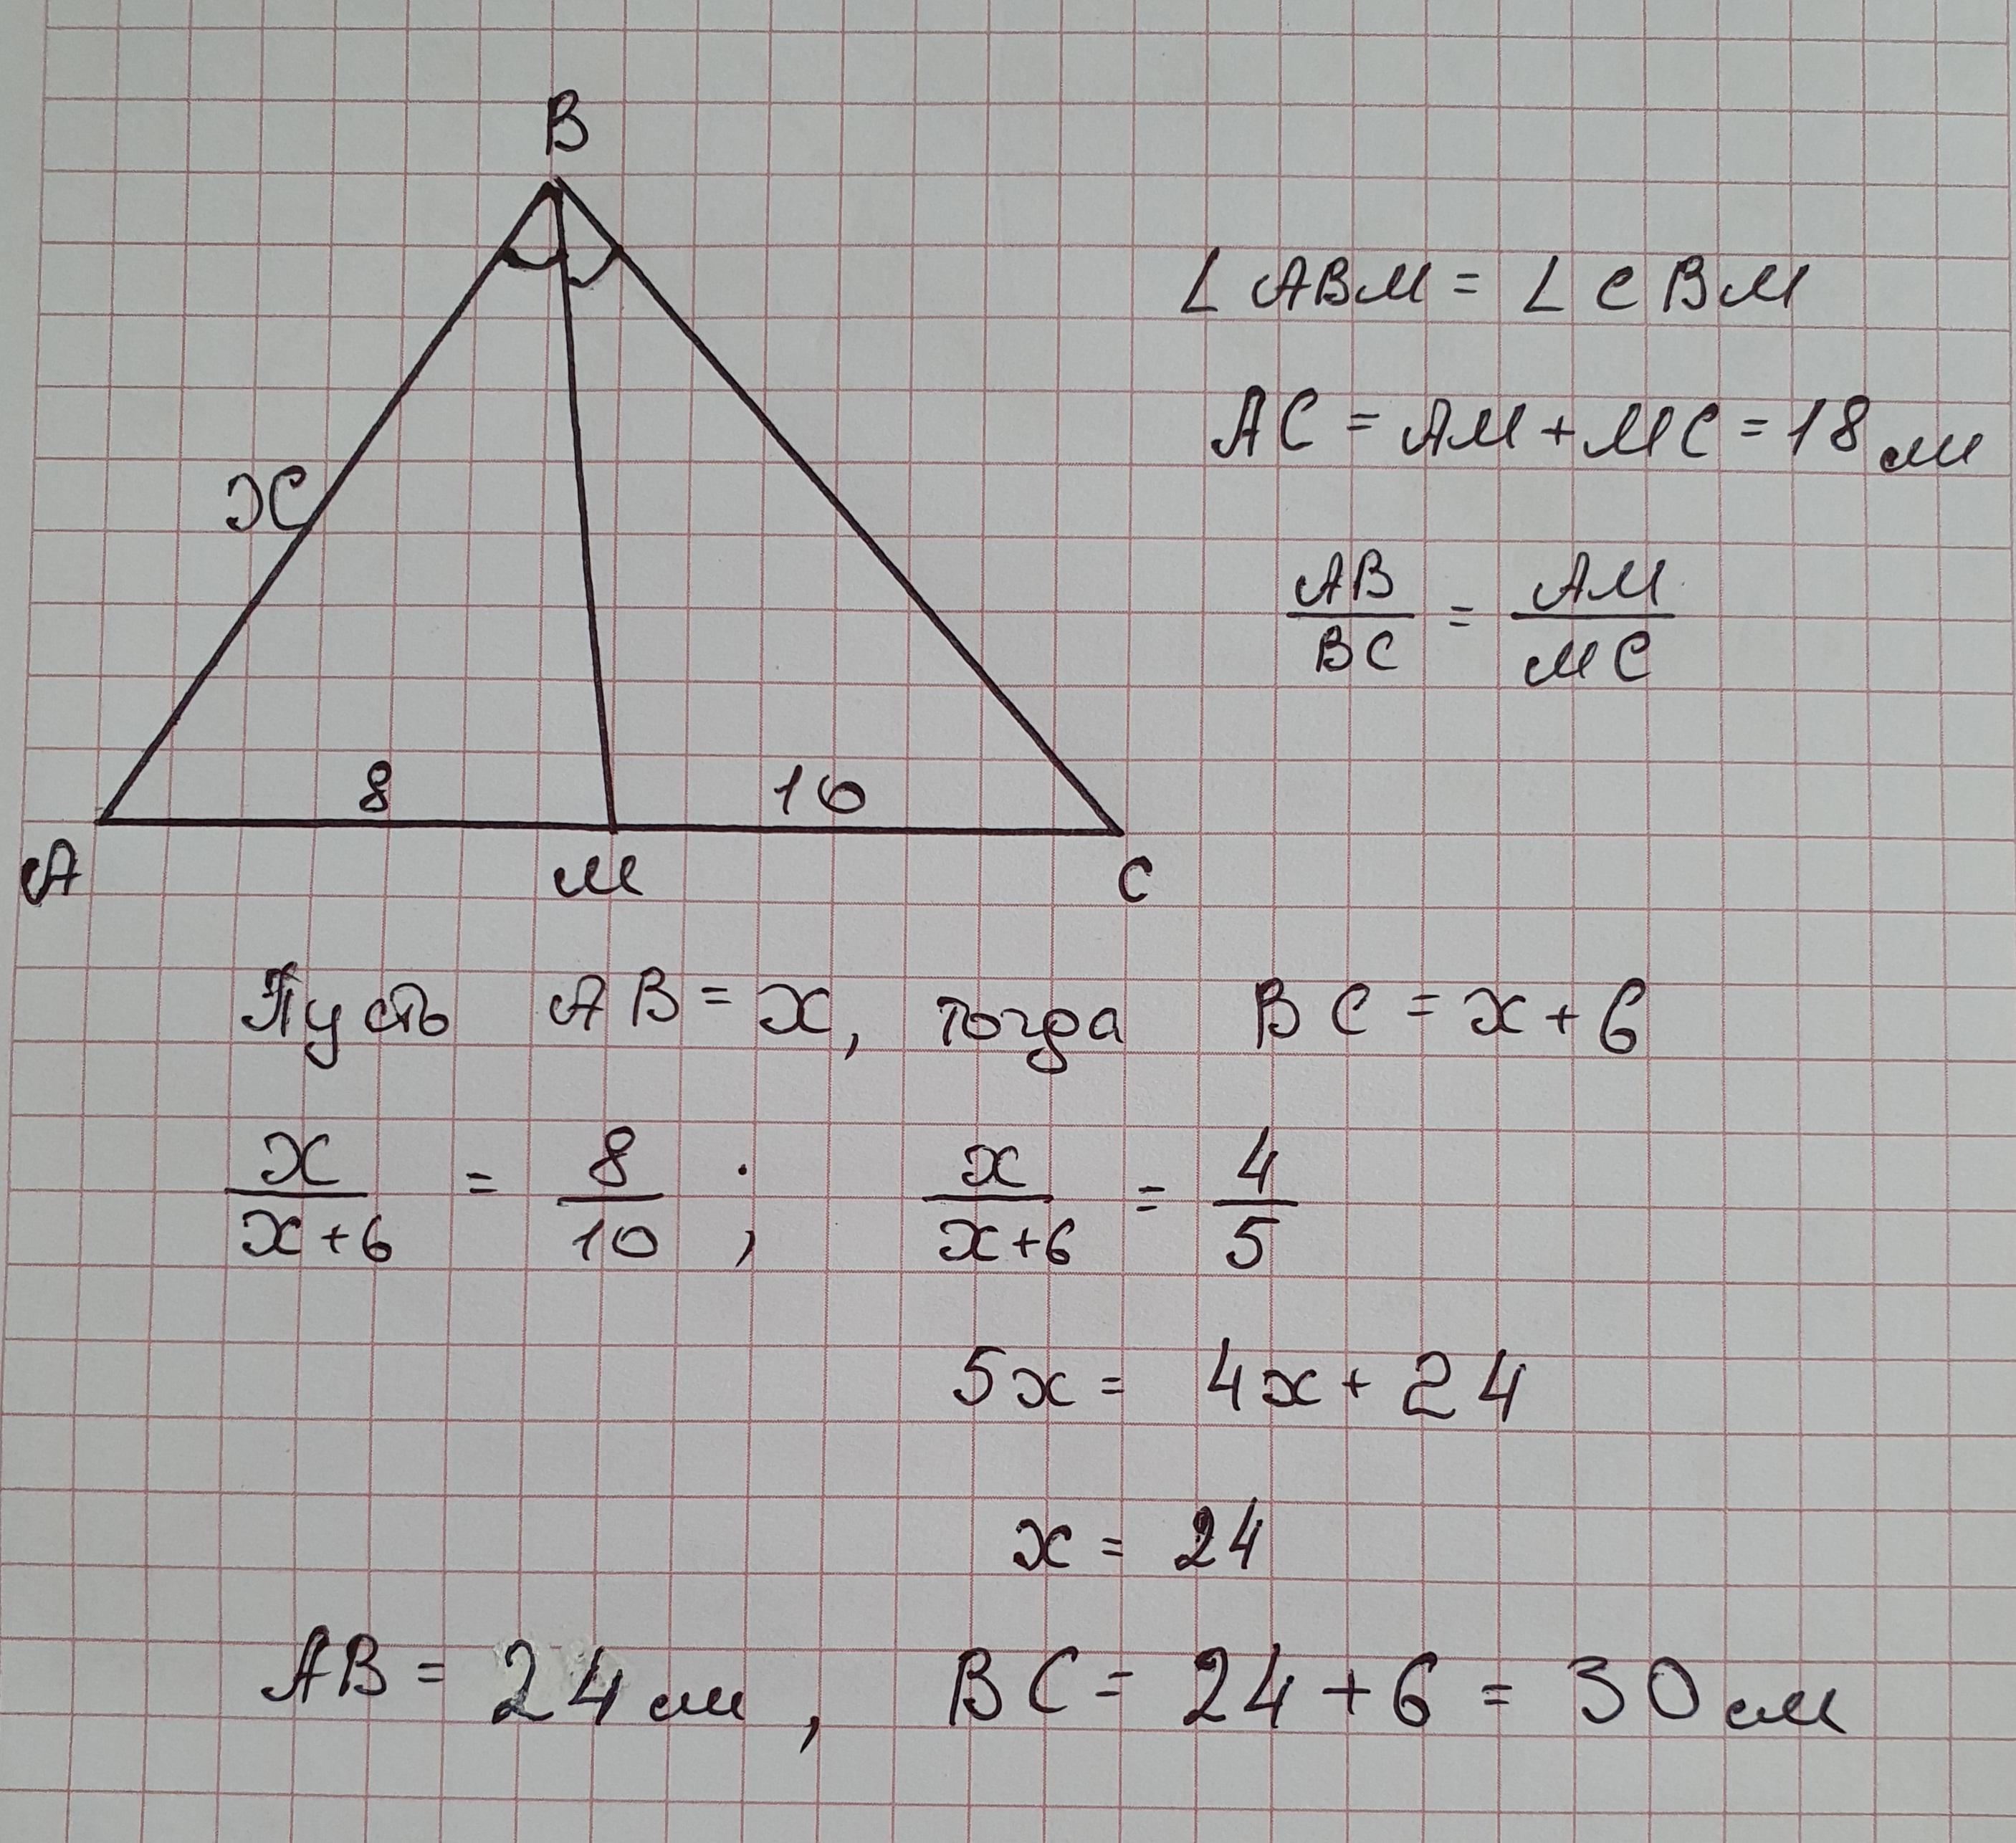 B
∠ABM = ∠CBM
AC = AM + MC = 18 см
x
AB/BC = AM/MC
8 10
A M C
Пусть AB = x, тогда BC = x + 6
x/(x+6) = 8/10 ; x/(x+6) = 4/5
5x = 4x + 24
x = 24
AB = 24 см, BC = 24 + 6 = 30 см